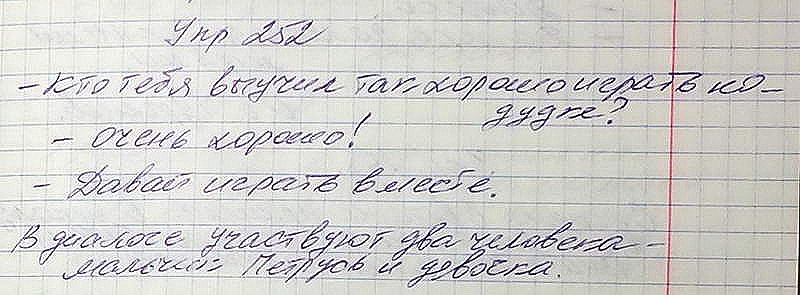 Упр 252
- Кто тебя выучил так хорошо играть на
дудке?
- Очень хорошо!
- Давай играть вместе.
В диалоге участвуют два человека -
мальчик Петрусь и девочка.